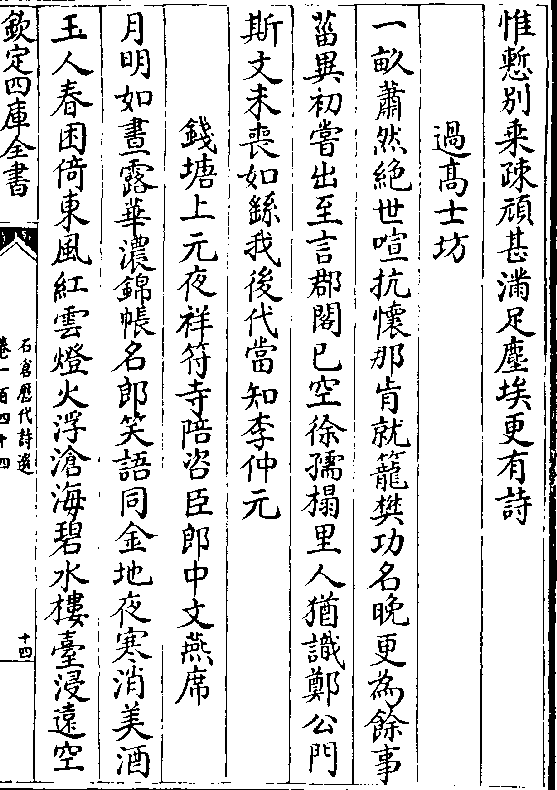 惟慙别乗疎頑甚滿足塵埃更有詩
過髙士坊
一畝蕭然絶世喧抗懷那肯就籠樊功名晚更為餘事
菑異初嘗出至言郡閣已空徐孺榻里人猶識鄭公門
斯文未喪如繇我後代當知李仲元
錢塘上元夜祥符寺陪咨臣郎中文燕席
月明如晝露華濃錦帳名郎笑語同金地夜寒消美酒
玉人春困倚東風紅雲燈火浮滄海碧水樓臺浸遠空
欽定四庫全書
石倉歷代詩選
卷一百四十四
十四